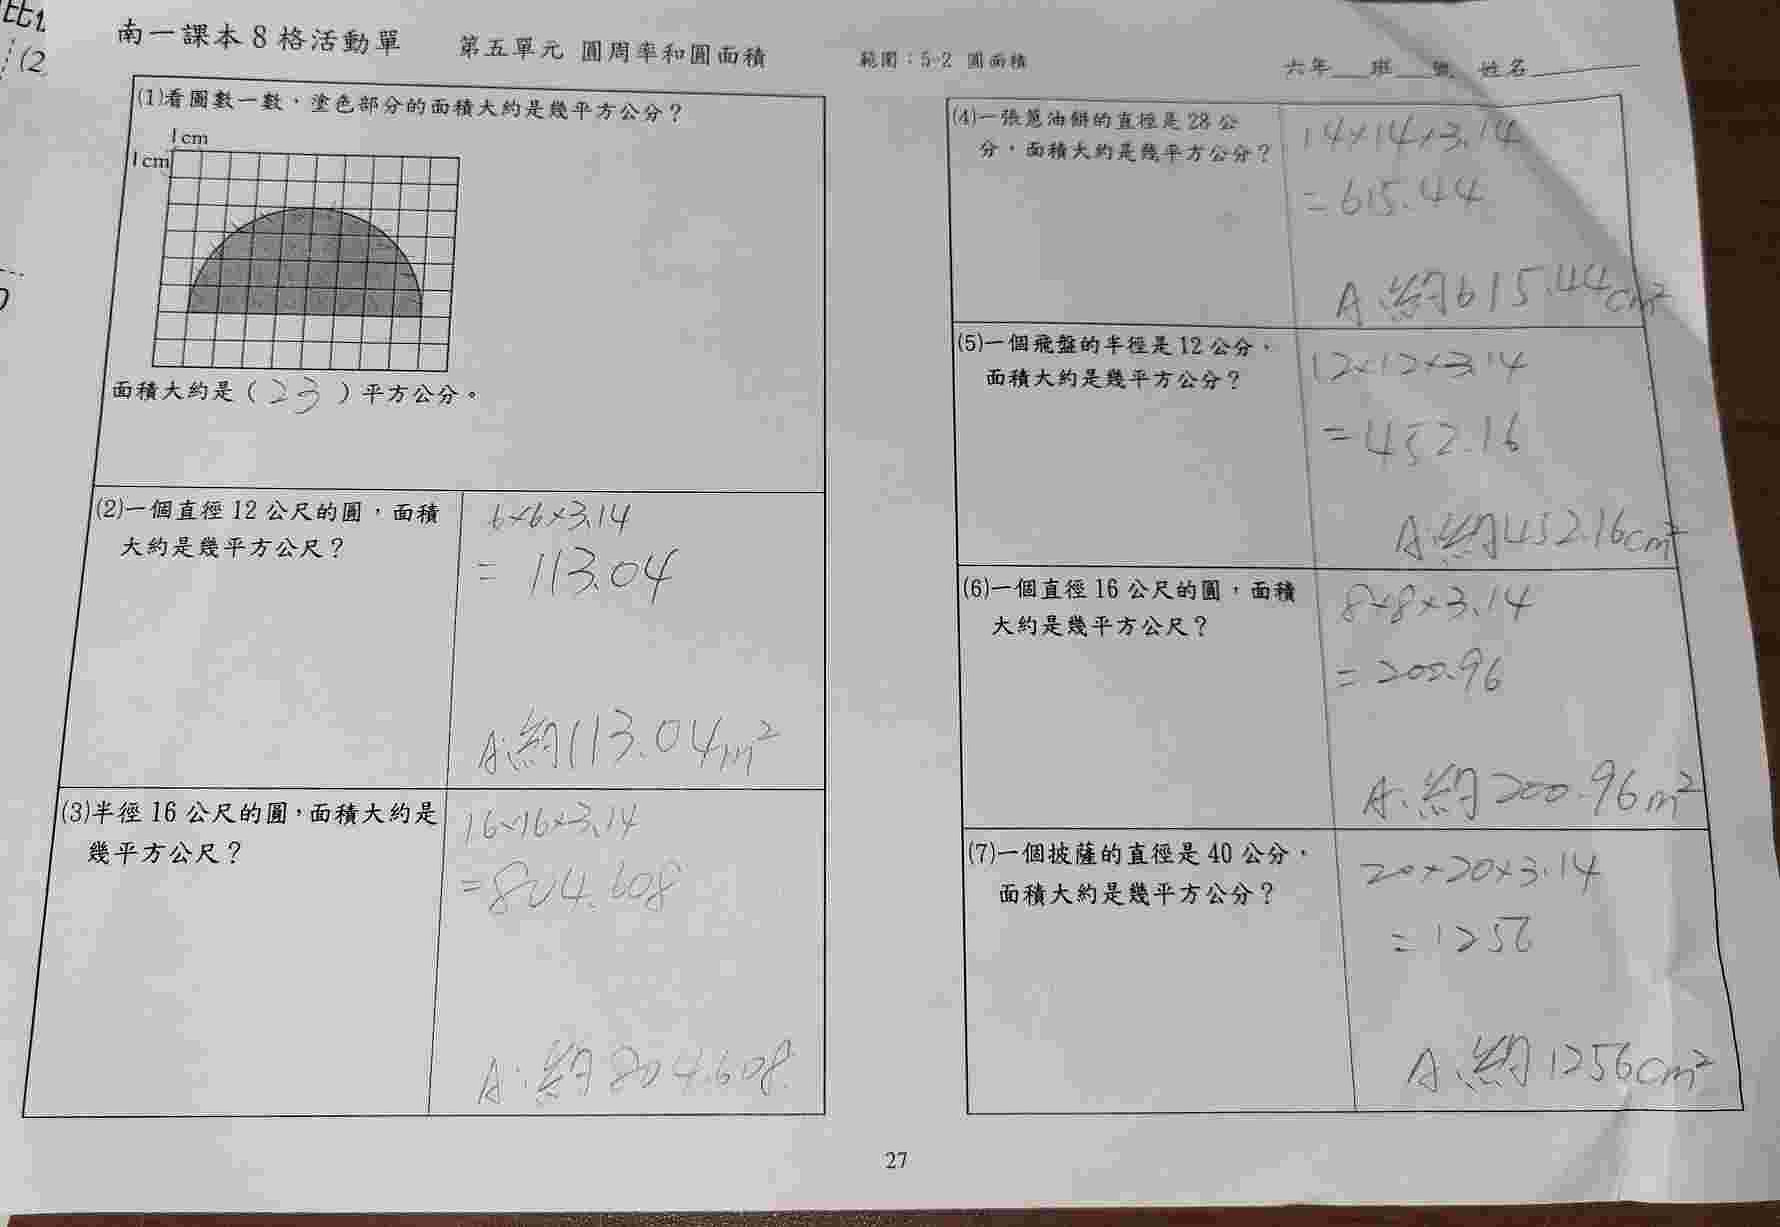 南一課本 8 格活動單 第五單元 圓周率和圓面積 範圍：5-2 圓面積 六年___班___號 姓名
(2
(1)看圖數一數，塗色部分的面積大約是幾平方公分？
1cm
1cm
面積大約是（23）平方公分。
(2)一個直徑 12 公尺的圓，面積
大約是幾平方公尺？
6×6×3.14
= 113.04
A:約113.04m²
(3)半徑 16 公尺的圓，面積大約是
幾平方公尺？
16×16×3.14
=804.608
A:約804.608
(4)一張蔥油餅的直徑是 28 公
分，面積大約是幾平方公分？
14×14×3.14
=615.44
A.約615.44cm²
(5)一個飛盤的半徑是 12 公分，
面積大約是幾平方公分？
12×12×3.14
=452.16
A.約452.16cm²
(6)一個直徑 16 公尺的圓，面積
大約是幾平方公尺？
8×8×3.14
=200.96
A.約200.96m²
(7)一個披薩的直徑是 40 公分，
面積大約是幾平方公分？
20×20×3.14
=1256
A.約1256cm²
27